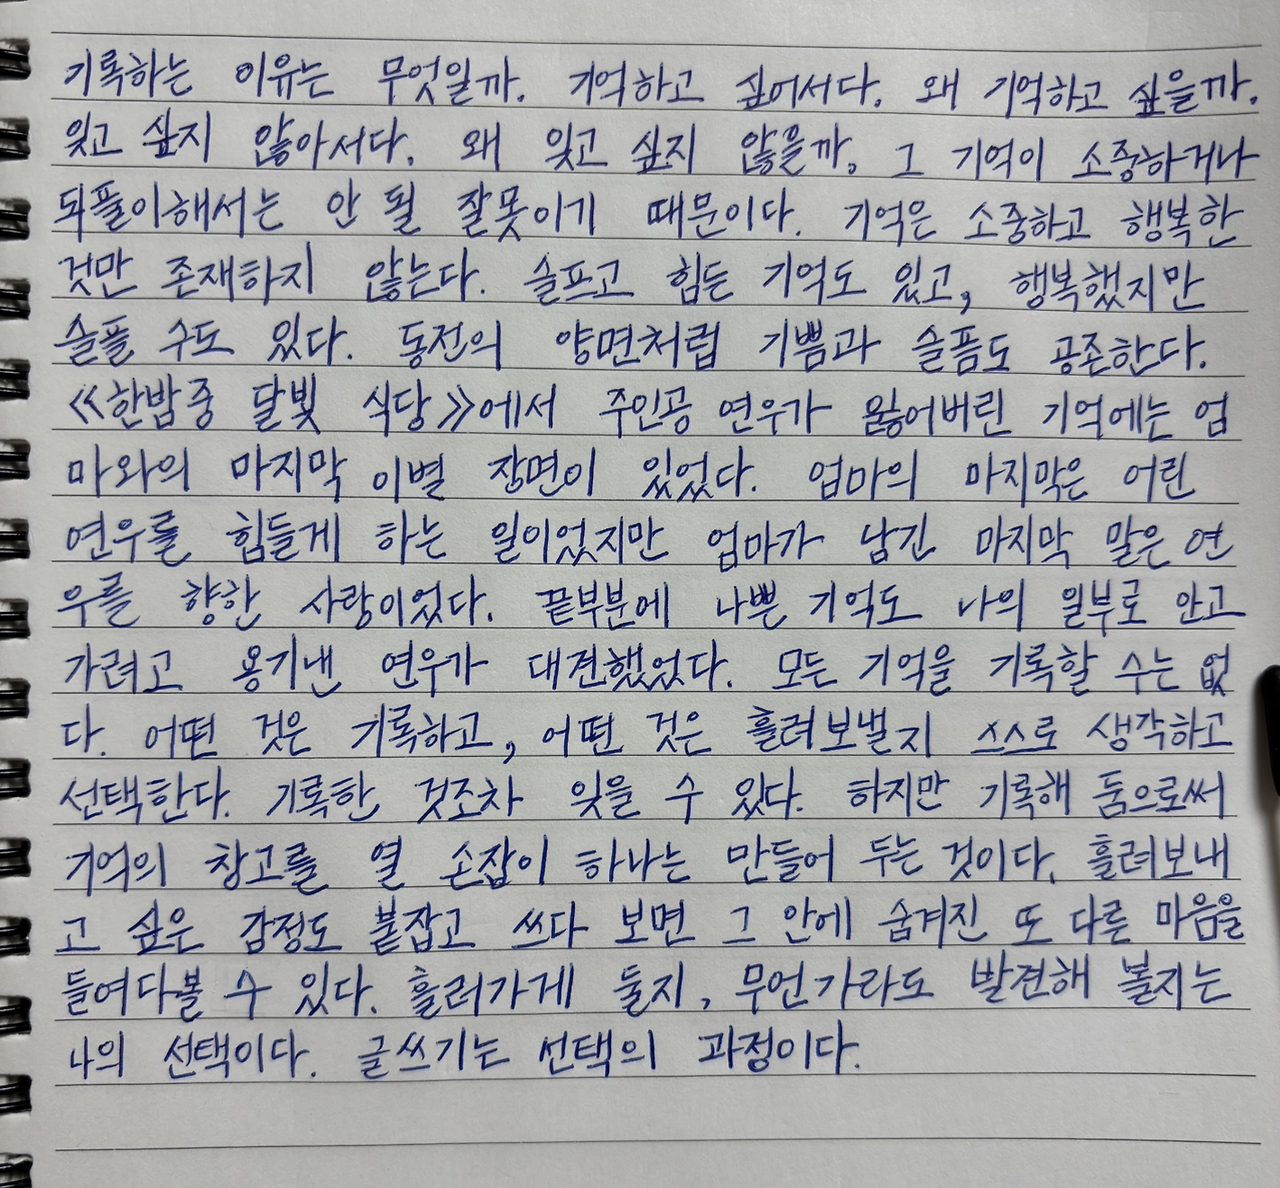 기록하는 이유는 무엇일까. 기억하고 싶어서다. 왜 기억하고 싶을까.
잊고 싶지 않아서다. 왜 잊고 싶지 않을까. 그 기억이 소중하거나
되풀이해서는 안 될 잘못이기 때문이다. 기억은 소중하고 행복한
것만 존재하지 않는다. 슬프고 힘든 기억도 있고, 행복했지만
슬플 수도 있다. 동전의 양면처럼 기쁨과 슬픔도 공존한다.
《한밤중 달빛 식당》에서 주인공 연우가 잃어버린 기억에는 엄
마와의 마지막 이별 장면이 있었다. 엄마의 마지막은 어린
연우를 힘들게 하는 일이었지만 엄마가 남긴 마지막 말은 연
우를 향한 사랑이었다. 끝부분에 나쁜 기억도 나의 일부로 안고
가려고 용기낸 연우가 대견했었다. 모든 기억을 기록할 수는 없
다. 어떤 것은 기록하고, 어떤 것은 흘려보낼지 스스로 생각하고
선택한다. 기록한 것조차 잊을 수 있다. 하지만 기록해 둠으로써
기억의 창고를 열 손잡이 하나는 만들어 두는 것이다. 흘려보내
고 싶은 감정도 붙잡고 쓰다 보면 그 안에 숨겨진 또 다른 마음을
들여다볼 수 있다. 흘러가게 둘지, 무언가라도 발견해 볼지는
나의 선택이다. 글쓰기는 선택의 과정이다.